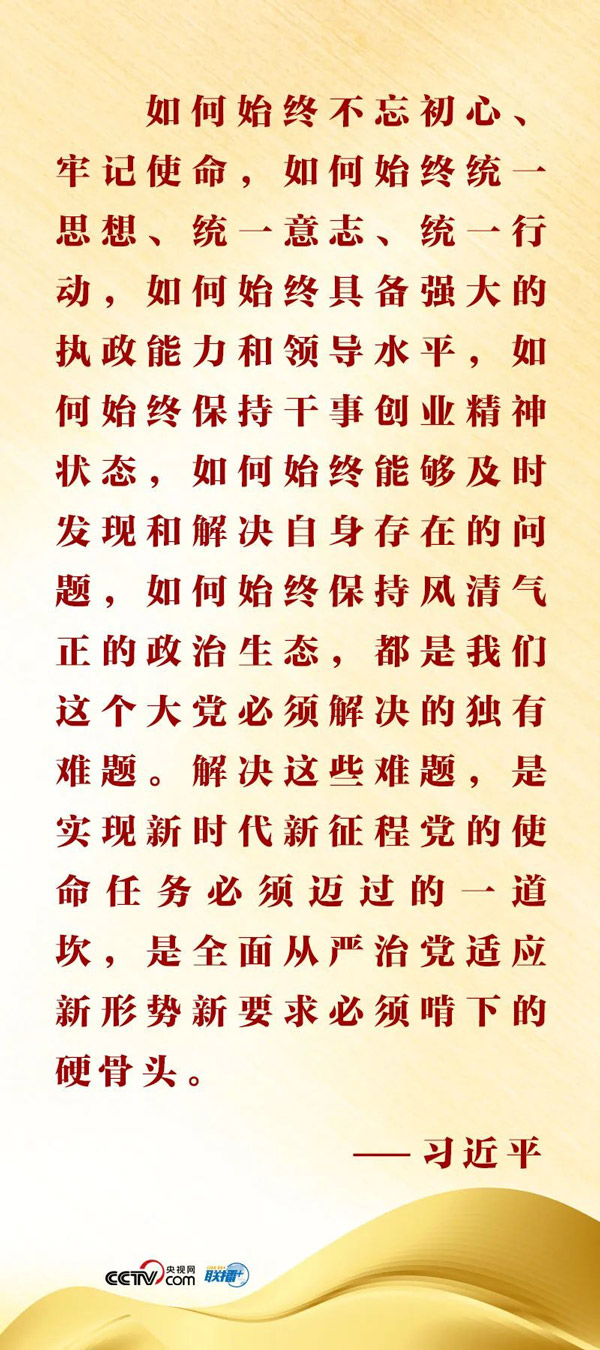 如何始终不忘初心、
牢记使命，如何始终统一
思想、统一意志、统一行
动，如何始终具备强大的
执政能力和领导水平，如
何始终保持干事创业精神
状态，如何始终能够及时
发现和解决自身存在的问
题，如何始终保持风清气
正的政治生态，都是我们
这个大党必须解决的独有
难题。解决这些难题，是
实现新时代新征程党的使
命任务必须迈过的一道
坎，是全面从严治党适应
新形势新要求必须啃下的
硬骨头。
——习近平
CCTV.com 央视网
联播+